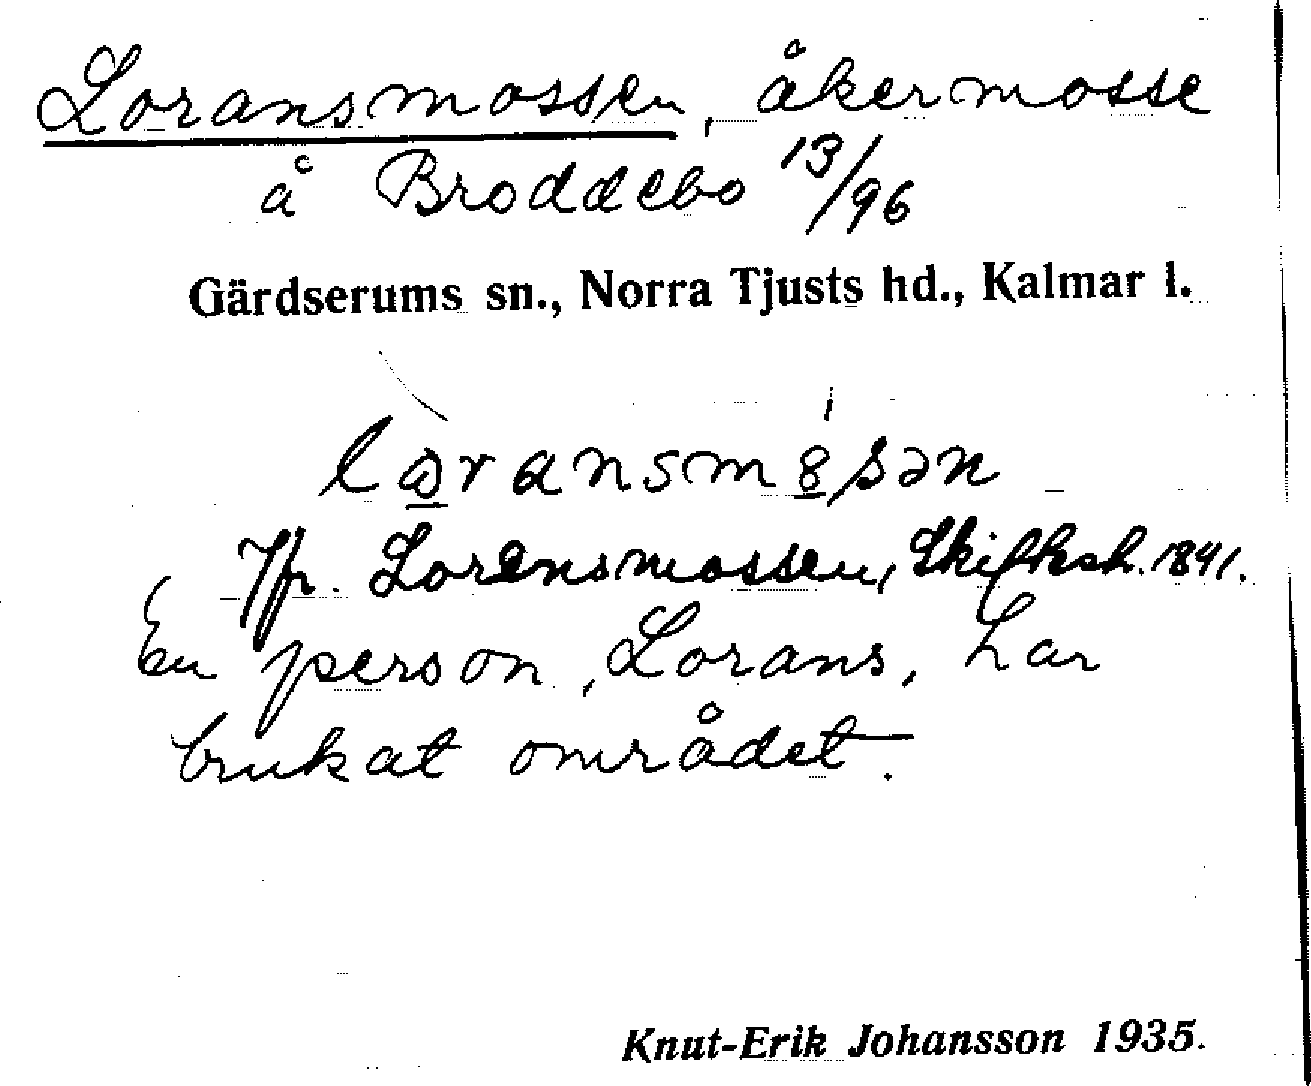 Loransmossen, åkermosse
å Broddebo 13/96
Gärdserums sn., Norra Tjusts hd., Kalmar l.
Jfr. Lorensmossen, 1841.
En person, Lorans, har
brukat området.
Knut-Erik Johansson 1935.